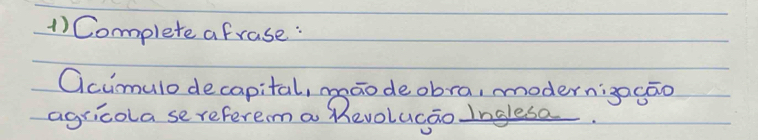 1) Complete a frase:
Acúmulo de capital, mão de obra, modernização
agrícola se referem a Revolução Inglesa.